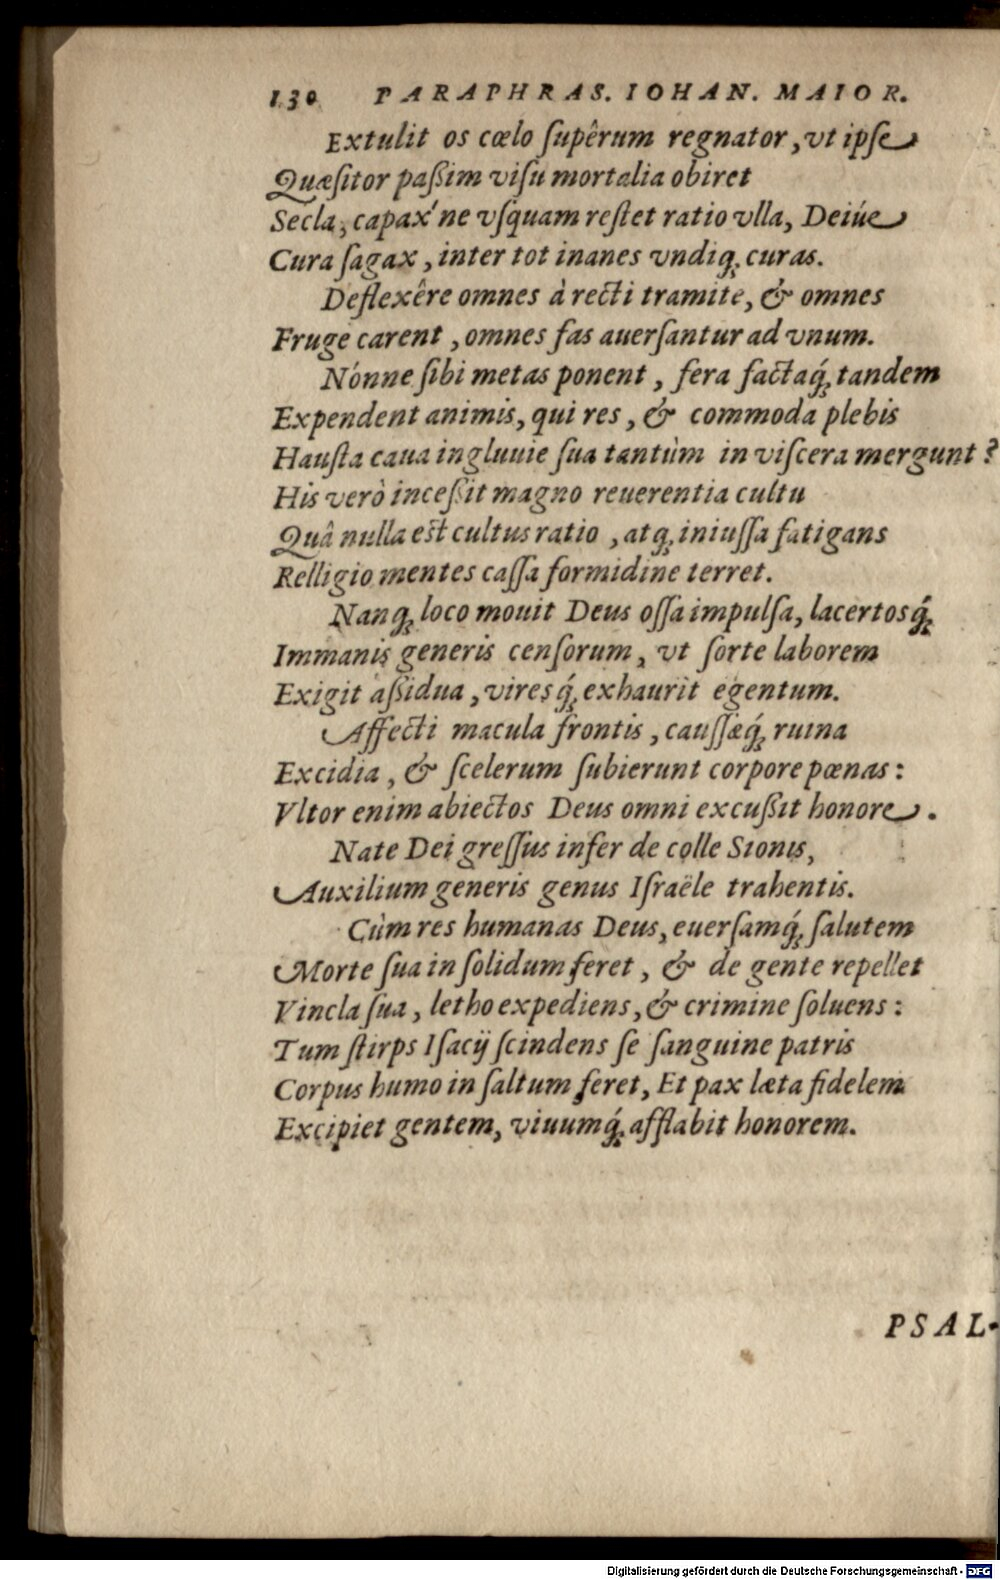 130 PARAPHRAS. IOHAN. MAIOR.
Extulit os cœlo ſupêrum regnator, vt ipſe
Quæſitor paßim viſu mortalia obiret
Secla, capax´ne vſquam reſtet ratio vlla, Deiúe
Cura ſagax, inter tot inanes vndiq; curas.
Deflexêre omnes à recti tramite, & omnes
Fruge carent, omnes fas auerſantur ad vnum.
Nónne ſibi metas ponent, fera factaq́; tandem
Expendent animis, qui res, & commoda plebis
Hauſta caua ingluuie ſua tantùm in viſcera mergunt?
His verò inceßit magno reuerentia cultu
Quâ nulla est cultus ratio, atq; iniuſſa fatigans
Relligio mentes caſſa formidine terret.
Nanq; loco mouit Deus oſſa impulſa, lacertosq́;
Immanis generis cenſorum, vt ſorte laborem
Exigit aßidua, viresq́; exhaurit egentum.
Affecti macula frontis, cauſſæq́; ruina
Excidia, & ſcelerum ſubierunt corpore pœnas:
Vltor enim abiectos Deus omni excußit honore.
Nate Dei greſſus infer de colle Sionis,
Auxilium generis genus Iſraële trahentis.
Cùm res humanas Deus, euerſamq́; ſalutem
Morte ſua in ſolidum feret, & de gente repellet
Vincla ſua, letho expediens, & crimine ſoluens:
Tum ſtirps Iſacij ſcindens ſe ſanguine patris
Corpus humo in ſaltum feret, Et pax læta fidelem
Excipiet gentem, viuumq́; afflabit honorem.
PSAL-
Digitalisierung gefördert durch die Deutsche Forschungsgemeinschaft - DFG